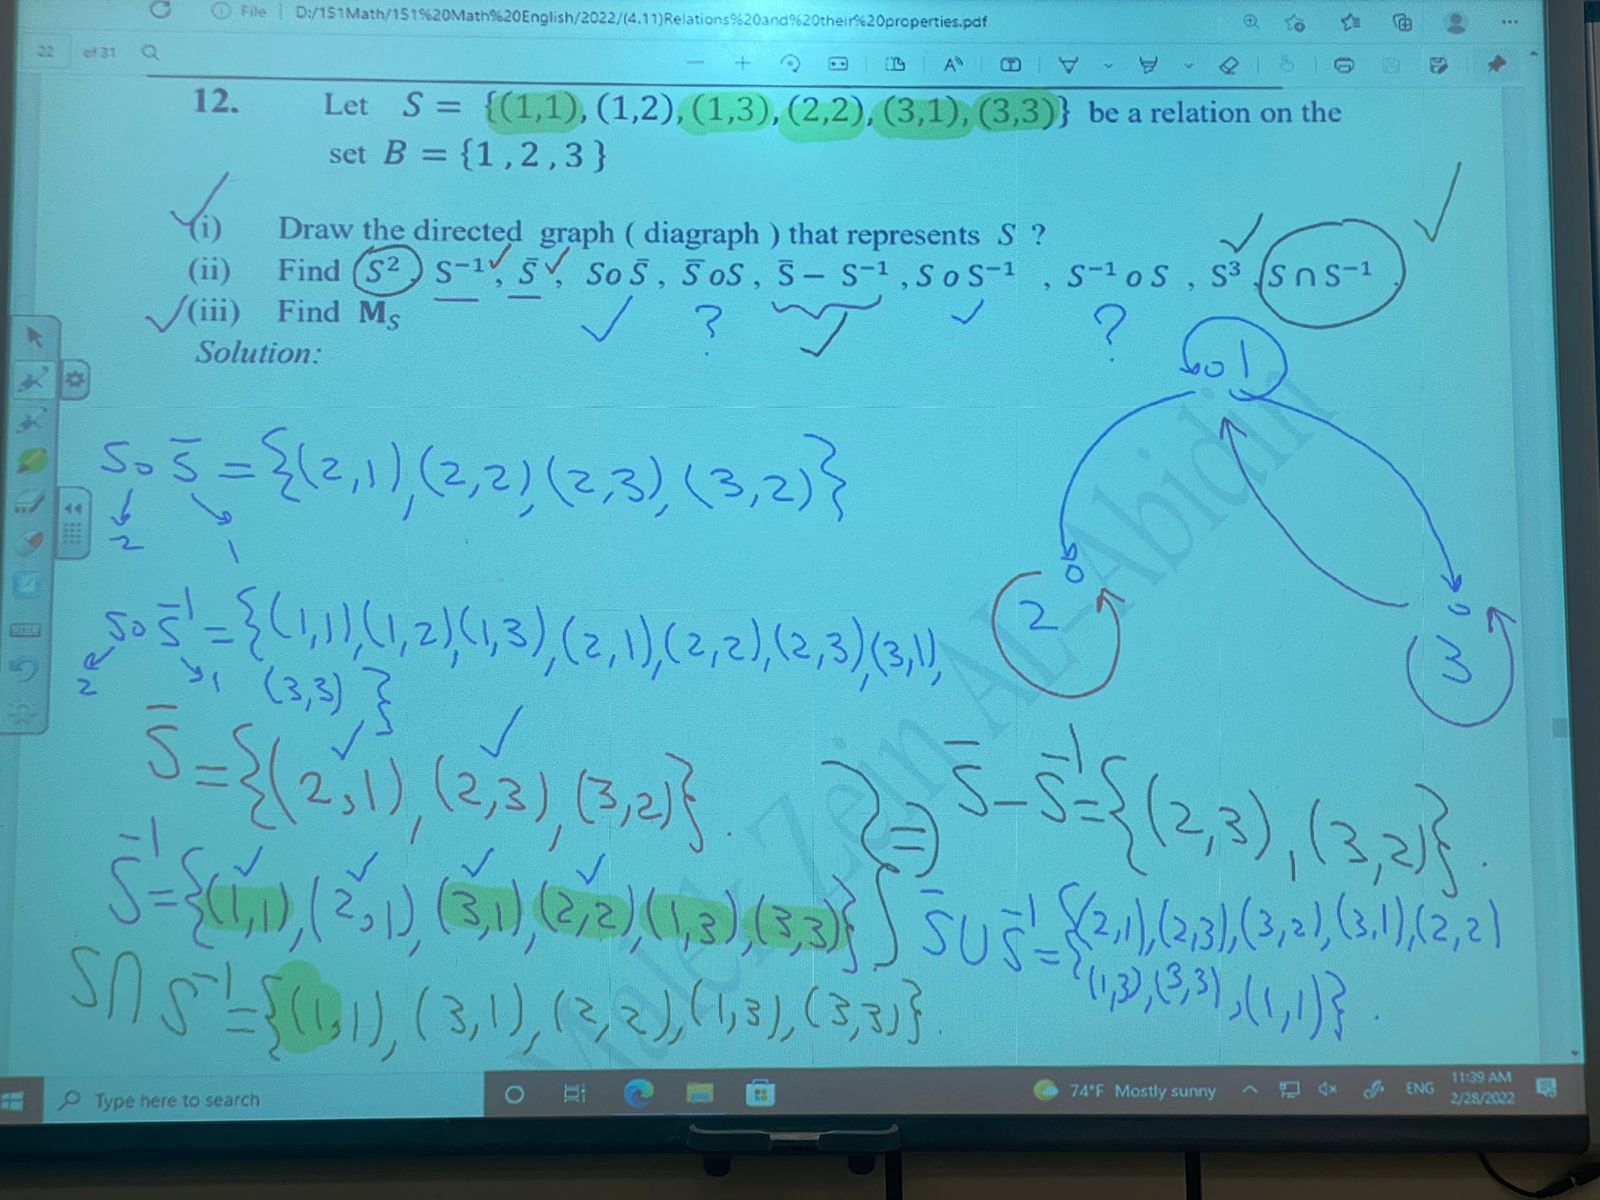 File | D:/151Math/151%20Math%20English/2022/(4.11)Relations%20and%20their%20properties.pdf
22 of 31
12. Let S = {(1,1), (1,2), (1,3), (2,2), (3,1), (3,3)} be a relation on the
set B = {1 , 2 , 3 }
(i) Draw the directed graph ( diagraph ) that represents S ?
(ii) Find S² , S⁻¹ , S̄ , S o S̄ , S̄ o S , S̄ − S⁻¹ , S o S⁻¹ , S⁻¹ o S , S³ , S ∩ S⁻¹ .
(iii) Find M_S
? ?
Solution:
1
2
3
S o S̄ = {(2,1), (2,2), (2,3), (3,2)}
2 1
S o S⁻¹ = {(1,1), (1,2), (1,3), (2,1), (2,2), (2,3), (3,1),
2 1 (3,3), }
S̄ = {(2,1), (2,3), (3,2)}.
S̄ − S⁻¹ = {(2,3), (3,2)}.
S⁻¹ = {(1,1), (2,1), (3,1), (2,2), (1,3), (3,3)}
S̄ ∪ S⁻¹ = {(2,1), (2,3), (3,2), (3,1), (2,2)
(1,3), (3,3), (1,1)}.
S ∩ S⁻¹ = {(1,1), (3,1), (2,2), (1,3), (3,3)}.
Malek Zein AL-Abidin
Type here to search
74°F Mostly sunny
ENG
11:39 AM
2/28/2022